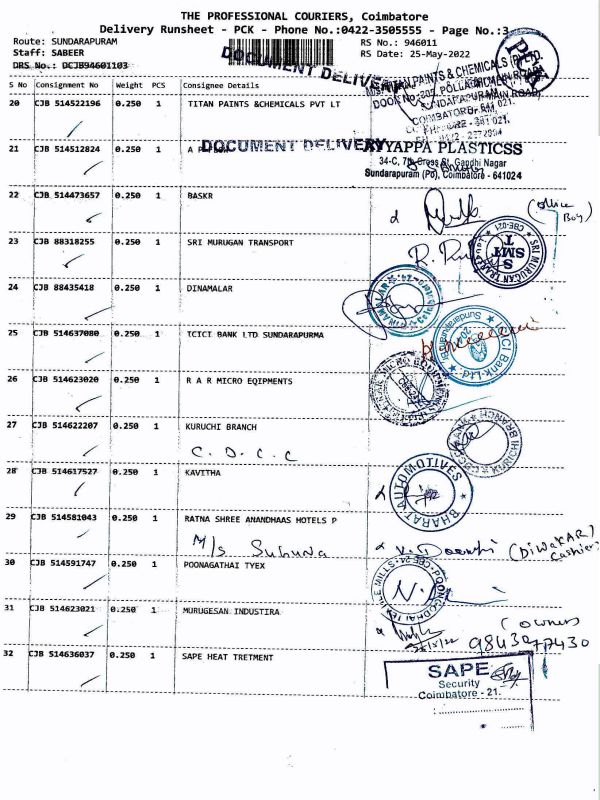 THE PROFESSIONAL COURIERS, Coimbatore
Delivery Runsheet - PCK - Phone No.:0422-3505555 - Page No.:3
Route: SUNDARAPURAM
RS No.: 946011
Staff: SABEER
RS Date: 25-May-2022
DRS No.: DCJB94601103
DOCUMENT DELIVERY
S No Consignment No Weight PCS Consignee Details
20 CJB 514522196 0.250 1 TITAN PAINTS &CHEMICALS PVT LT
TITAN PAINTS & CHEMICALS (P) LTD.
21 CJB 514512824 0.250 1
DOCUMENT DELIVERY
AYYAPPA PLASTICSS
34-C, 7th Cross St, Gandhi Nagar
Sundarapuram (Po), Coimbatore - 641024
22 CJB 514473657 0.250 1 BASKR
(Office Boy)
23 CJB 88318255 0.250 1 SRI MURUGAN TRANSPORT
SRI MURUGAN
SMT
CBE-021
24 CJB 88435418 0.250 1 DINAMALAR
25 CJB 514637080 0.250 1 TCICI BANK LTD SUNDARAPURMA
ICICI Bank Ltd
26 CJB 514623020 0.250 1 R A R MICRO EQIPMENTS
27 CJB 514622207 0.250 1 KURUCHI BRANCH
C. D. C. C
KURICHI BRANCH
28 CJB 514617527 0.250 1 KAVITHA
BHARAT AUTOMOTIVES
29 CJB 514581043 0.250 1 RATNA SHREE ANANDHAAS HOTELS P
M/s Suguna
(DIWAKAR)
Cashier
30 CJB 514591747 0.250 1 POONAGATHAI TYEX
31 CJB 514623021 0.250 1 MURUGESAN INDUSTIRA
(owner
32 CJB 514636037 0.250 1 SAPE HEAT TRETMENT
SAPE
Security
Coimbatore - 21.